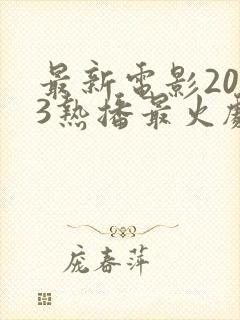 最新電影20
3熱播最火
龐春萍